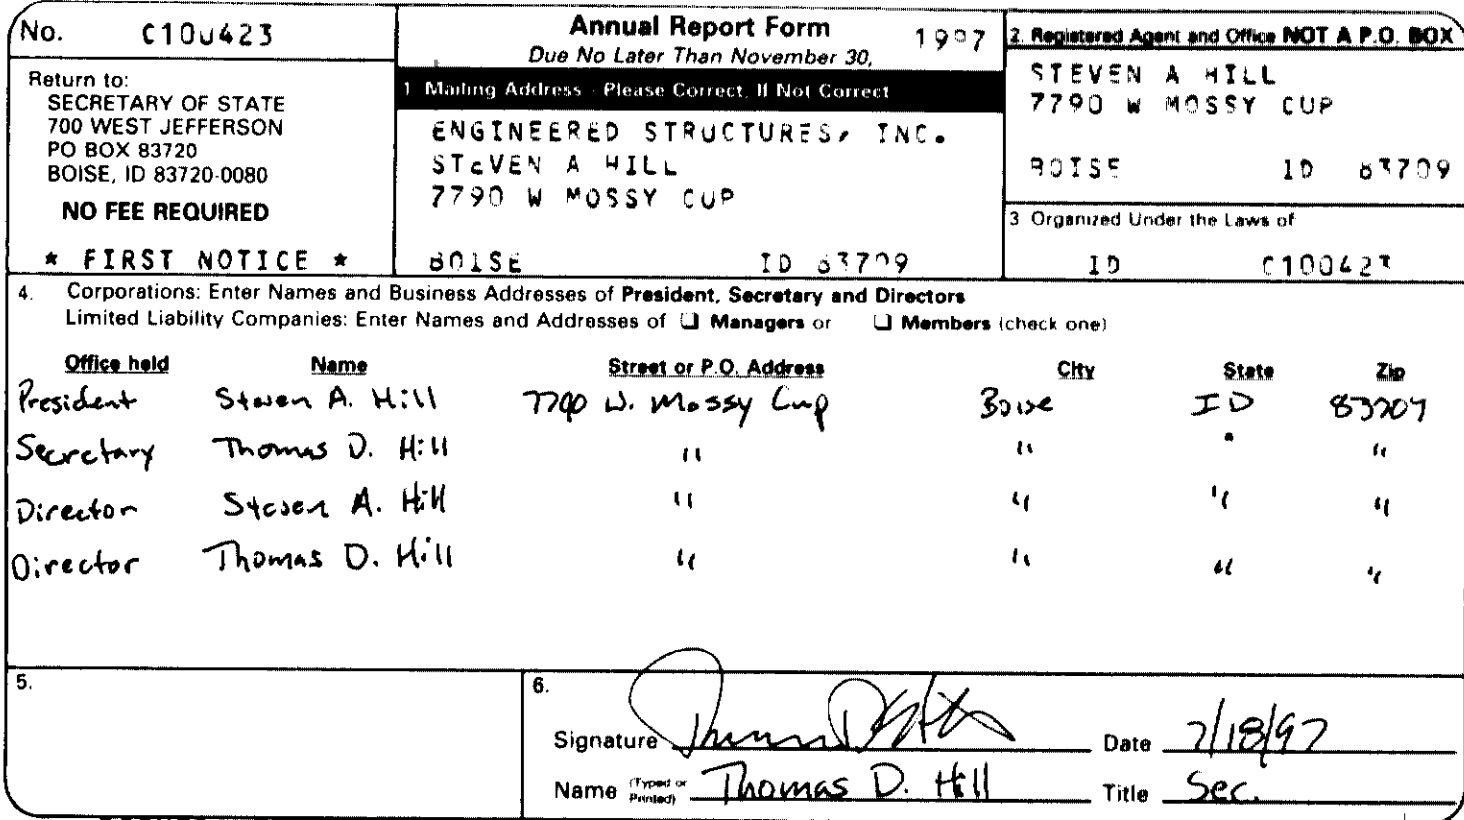 No. C100423
Annual Report Form 1997
Due No Later Than November 30,
Return to:
SECRETARY OF STATE
700 WEST JEFFERSON
PO BOX 83720
BOISE, ID 83720-0080
NO FEE REQUIRED
* FIRST NOTICE *
1 Mailing Address - Please Correct, If Not Correct
ENGINEERED STRUCTURES, INC.
STEVEN A HILL
7790 W MOSSY CUP
BOISE ID 83709
2. Registered Agent and Office NOT A P.O. BOX
STEVEN A HILL
7790 W MOSSY CUP
BOISE ID 83709
3 Organized Under the Laws of
ID C100423
4. Corporations: Enter Names and Business Addresses of President, Secretary and Directors
Limited Liability Companies: Enter Names and Addresses of ❑ Managers or ❑ Members (check one)
Office held Name Street or P.O. Address City State Zip
President Steven A. Hill 7790 W. Mossy Cup Boise ID 83709
Secretary Thomas D. Hill " " " "
Director Steven A. Hill " " " "
Director Thomas D. Hill " " " "
5.
6.
Signature Date 7/18/97
Name (Typed or Printed) Thomas D. Hill Title Sec.